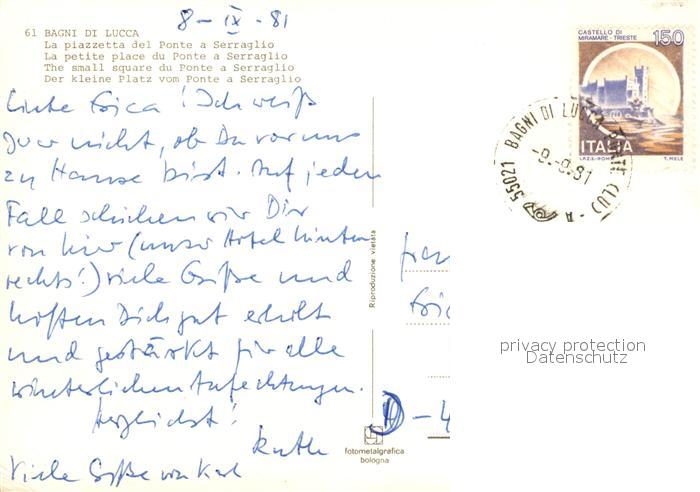 8-IX-81
61 BAGNI DI LUCCA
La piazzetta del Ponte a Serraglio
La petite place du Ponte a Serraglio
The small square du Ponte a Serraglio
Der kleine Platz vom Ponte a Serraglio
Liebe Erica! Ich weiß
zwar nicht, ob Du vor uns
zu Hause bist. Auf jeden
Fall schicken wir Dir
von hier (unser Hotel hinten
rechts!) viele Grüße und
hoffen Dich gut erholt
und gestärkt für alle
winterlichen Anfechtungen.
Herzlichst!
Ruth
Viele Grüße von Karl
Riproduzione vietata
fotometalgrafica
bologna
CASTELLO DI
MIRAMARE - TRIESTE
150
ITALIA
I.P.Z.S. - ROMA
T. MELE
55021 BAGNI DI LUCCA (LU)
-9.-9.81
Frau
Eric
D-4
privacy protection
Datenschutz